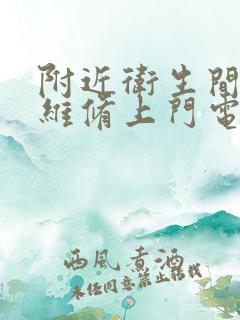 附近衛生間
維脩上門電
西風煮酒
未经同意禁止转载